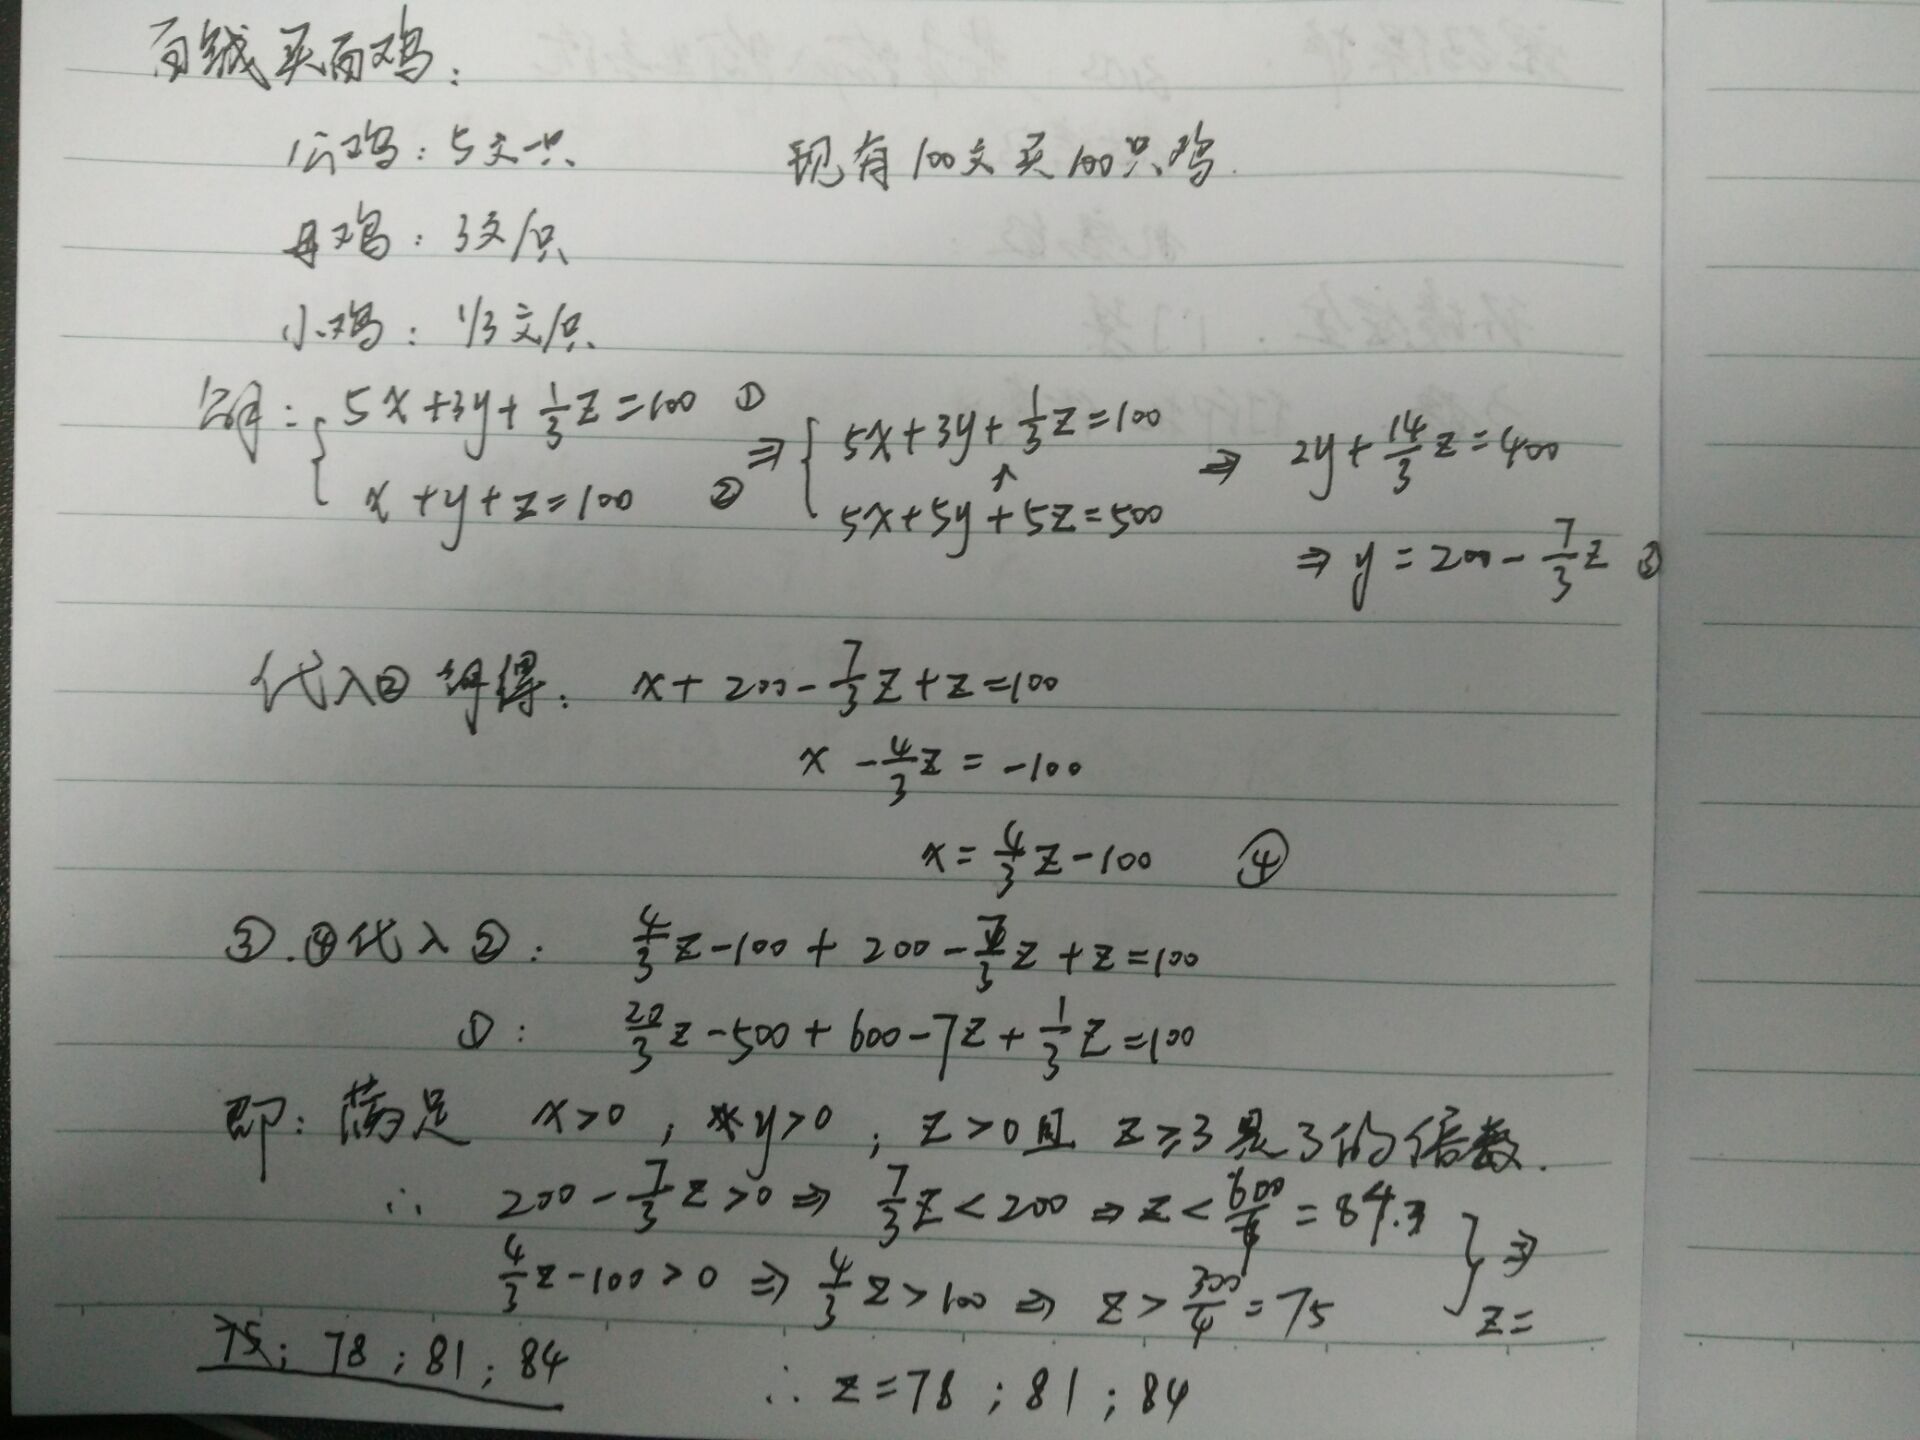 百钱买百鸡:
公鸡: 5文一只 现有100文买100只鸡.
母鸡: 3文/只
小鸡: 1/3文/只
5x+3y+1/3z=100 ① ⇒ 5x+3y+1/3z=100 ⇒ 2y+14/3z=400
x+y+z=100 ② 5x+5y+5z=500
⇒ y=200-7/3z ③
代入② 得: x+200-7/3z+z=100
x-4/3z=-100
x=4/3z-100 ④
③.④代入②: 4/3z-100+200-7/3z+z=100
①: 20/3z-500+600-7z+1/3z=100
即: 满足 x>0, y>0, z>0且 z≥3是3的倍数.
∴ 200-7/3z>0 ⇒ 7/3z<200 ⇒ z<600/7=84.3 } ⇒
4/3z-100>0 ⇒ 4/3z>100 ⇒ z>300/4=75 z=
75; 78; 81; 84
∴ z=78; 81; 84